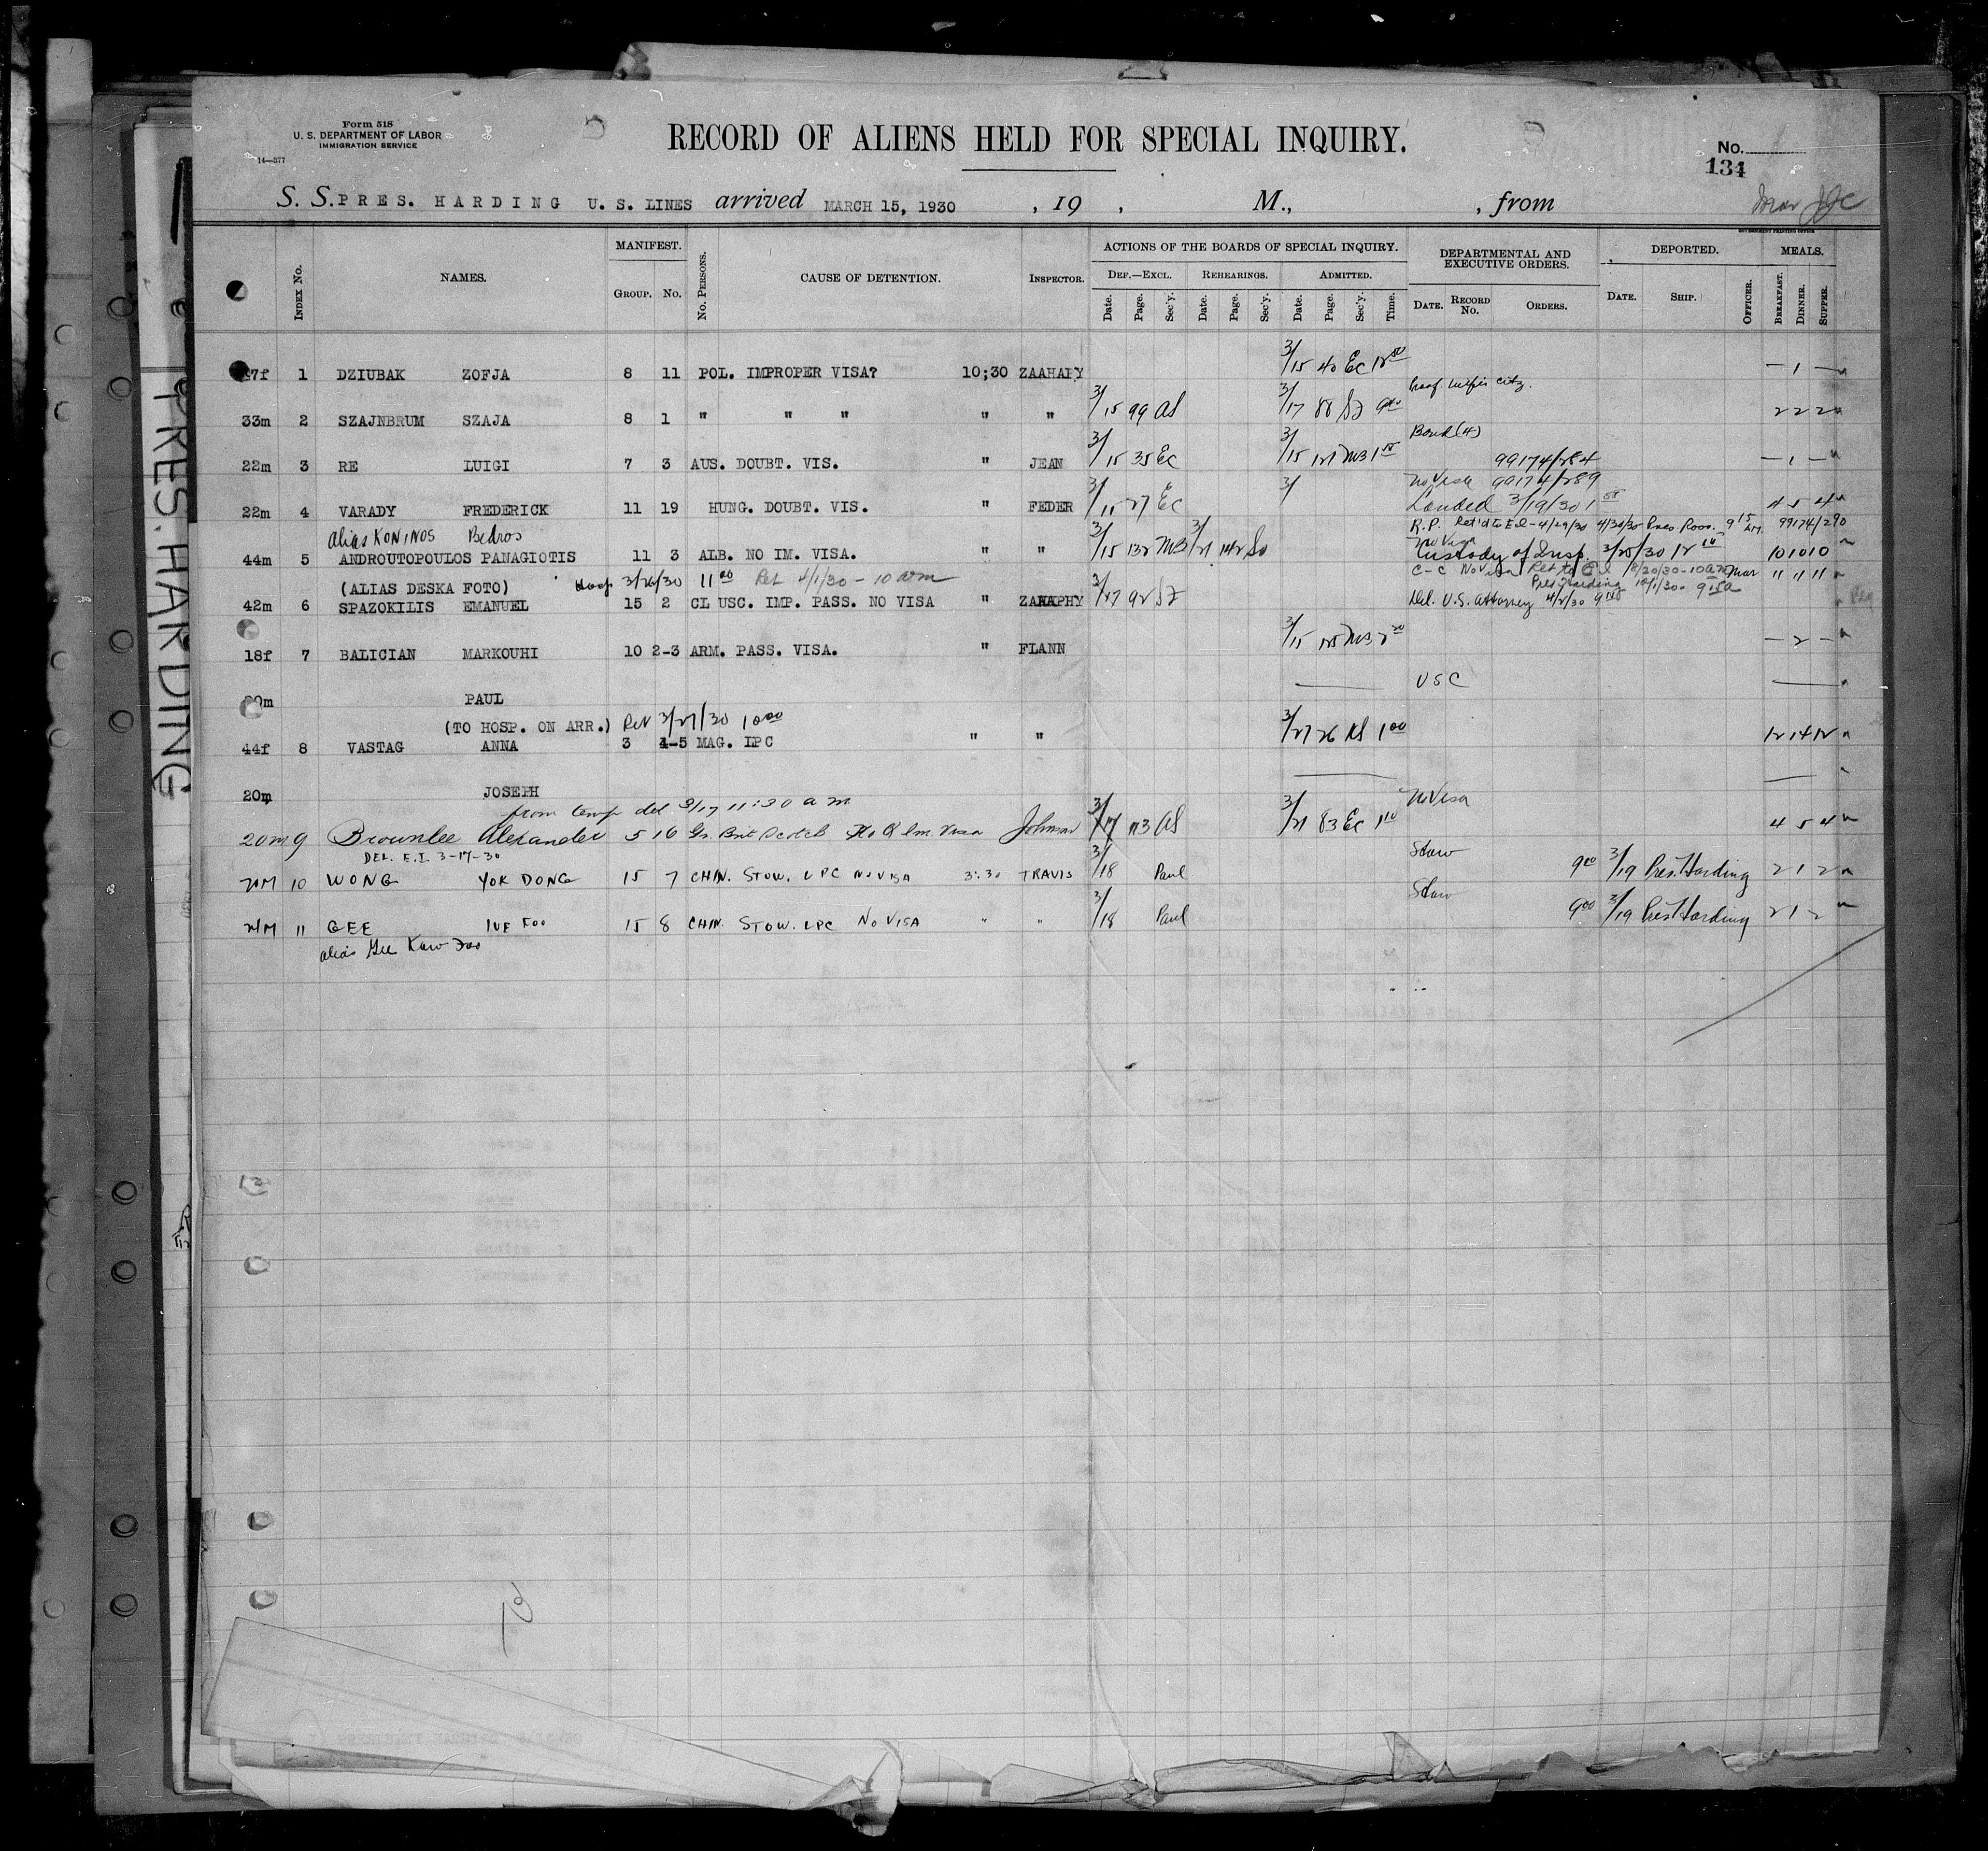 Form 518
U. S. DEPARTMENT OF LABOR
IMMIGRATION SERVICE
14—377
RECORD OF ALIENS HELD FOR SPECIAL INQUIRY.
No.
134
S. S. PRES. HARDING U. S. LINES arrived MARCH 15, 1930 , 19 , M., , from
GOVERNMENT PRINTING OFFICE
PRES. HARDING
INDEX No. NAMES. MANIFEST. GROUP. No. No. PERSONS. CAUSE OF DETENTION. INSPECTOR. ACTIONS OF THE BOARDS OF SPECIAL INQUIRY. DEPARTMENTAL AND EXECUTIVE ORDERS. DEPORTED. MEALS.
DEF.—EXCL. REHEARINGS. ADMITTED.
Date. Page. Sec'y. Date. Page. Sec'y. Date. Page. Sec'y. Time. DATE. RECORD No. ORDERS. DATE. SHIP. OFFICER. BREAKFAST. DINNER. SUPPER.
7f 1 DZIUBAK ZOFJA 8 11 POL. IMPROPER VISA? 10;30 3/15 40 Ec — 1 —
33m 2 SZAJNBRUM SZAJA 8 1 " " " " " 3/15 99 AS 3/17 88 2 2 2
Bond (4)
22m 3 RE LUIGI 7 3 AUS. DOUBT. VIS. " JEAN 3/15 35 Ec 3/15 99174/284 — 1 —
No Visa 99174/289
22m 4 VARADY FREDERICK 11 19 HUNG. DOUBT. VIS. " FEDER 3/15 27 Ec 3/ Landed 3/19/30 4 5 4
alias KONINOS Bedros
R.P. Ret'd to E.I - 4/29/30 4/30/30 Pres. Roos. 9 15 99174/290
No Visa
44m 5 ANDROUTOPOULOS PANAGIOTIS 11 3 ALB. NO IM. VISA. " " 3/15 132 MB 3/21 142 Custody of Insp. 3/25/30 10 10 10
(ALIAS DESKA FOTO) Hosp 3/26/30 11 00 Ret 4/1/30 - 10 am
C-C No Visa Ret to E I 10am 11 11 11
Pres. Harding
42m 6 SPAZOKILIS EMANUEL 15 2 CL USC. IMP. PASS. NO VISA " 3/17 92 Del. U.S. Attorney 4/2/30
18f 7 BALICIAN MARKOUHI 10 2-3 ARM. PASS. VISA. " FLANN 3/15 125 MB — 2 —
0m PAUL USC
(TO HOSP. ON ARR.) Ret 3/27/30 10 00
44f 8 VASTAG ANNA 3 4-5 MAG. LPC " " 3/27 26 1 00 12 14 12
20m JOSEPH
from temp det 3/17 11:30 am
No Visa
20m 9 Brownlee Alexander 5 16 Gr. Brit Scotch No Im Visa Johnson 3/17 113 AS 3/21 83 Ec 1 10 4 5 4
DEL. E.I. 3-17-30
Stow
20M 10 WONG YOK DONG 15 7 CHIN. STOW. LPC NO VISA 3:30 TRAVIS 3/18 Paul 9 00 3/19 Pres. Harding 2 1 2
Stow
21M 11 GEE 15 8 CHIN. STOW. LPC NO VISA " " 3/18 Paul 9 00 3/19 Pres Harding 2 1 2
alias Gee Kaw Foo